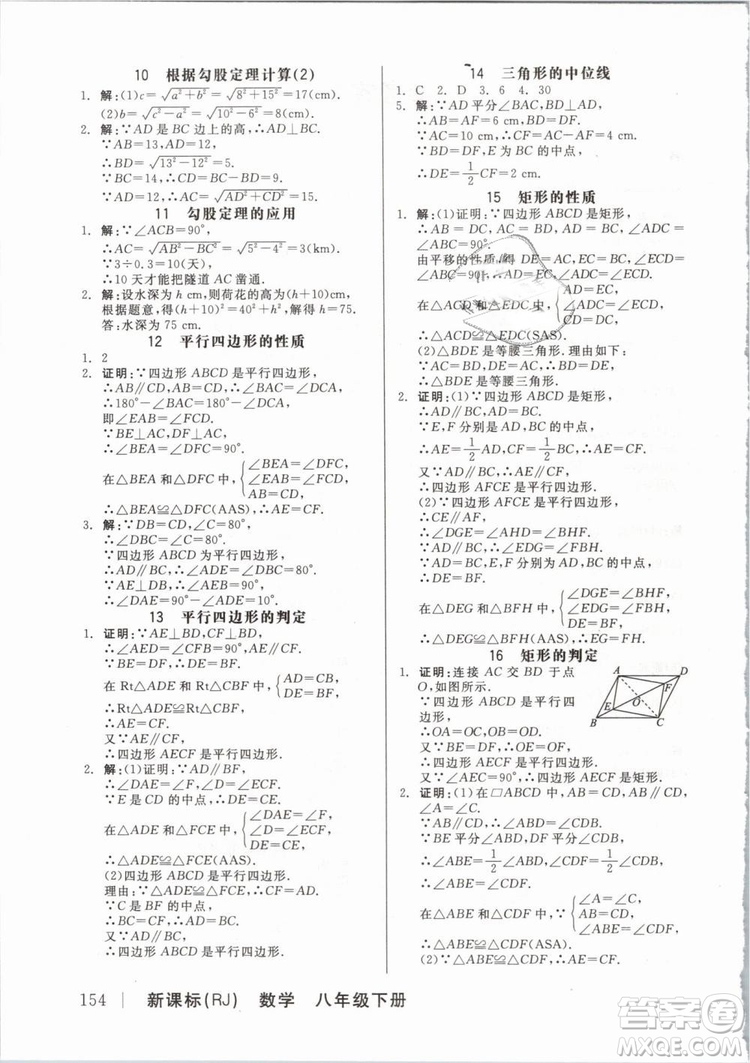 10 根据勾股定理计算(2)
1. 解:(1)c=√(a²+b²)=√(8²+15²)=17(cm).
(2)b=√(c²-a²)=√(10²-6²)=8(cm).
2. 解:∵AD是BC边上的高,∴AD⊥BC.
∵AB=13,AD=12,
∴BD=√(13²-12²)=5.
∵BC=14,∴CD=BC-BD=9.
∵AD=12,∴AC=√(AD²+CD²)=15.
11 勾股定理的应用
1. 解:∵∠ACB=90°,
∴AC=√(AB²-BC²)=√(5²-4²)=3(km).
∵3÷0.3=10(天),
∴10天才能把隧道AC凿通.
2. 解:设水深为h cm,则荷花的高为(h+10)cm,
根据题意,得(h+10)²=40²+h²,解得h=75.
答:水深为75 cm.
12 平行四边形的性质
1. 2
2. 证明:∵四边形ABCD是平行四边形,
∴AB∥CD,∴∠BAC=∠DCA,
∴180°-∠BAC=180°-∠DCA,
即∠EAB=∠FCD.
∵BE⊥AC,DF⊥AC,
∴∠BEA=∠DFC=90°.
在△BEA和△DFC中,{∠BEA=∠DFC,
∠EAB=∠FCD,
AB=CD,
∴△BEA≌△DFC(AAS),∴AE=CF.
3. 解:∵DB=CD,∠C=80°,
∴∠DBC=∠C=80°.
∵四边形ABCD为平行四边形,
∴AD∥BC,∴∠ADE=∠DBC=80°.
∵AE⊥DB,∴∠AED=90°,
∴∠DAE=90°-∠ADE=10°.
13 平行四边形的判定
1. 证明:∵AE⊥BD,CF⊥BD,
∴AE∥CF,∠AED=∠CFB=90°.
在Rt△ADE和Rt△CBF中,{AD=CB,
DE=BF,
∴Rt△ADE≌Rt△CBF,
∴AE=CF.
又∵AE∥CF,
∴四边形AECF是平行四边形.
2. 解:(1)证明:∵AD∥BF,
∴∠DAE=∠F,∠D=∠ECF.
∵E是CD的中点,∴DE=CE.
在△ADE和△FCE中,{∠DAE=∠F,
∠D=∠ECF,
DE=CE,
∴△ADE≌△FCE(AAS).
(2)四边形ABCD是平行四边形.
理由:∵△ADE≌△FCE,∴AD=FC.
∵C是BF的中点,
∴BC=CF,∴AD=BC.
又∵AD∥BC,
∴四边形ABCD是平行四边形.
154 新课标(RJ) 数学 八年级下册
14 三角形的中位线
1. C 2. D 3. 6 4. 30
5. 解:∵AD平分∠BAC,BF⊥AD,
∴AB=AF=6 cm,BD=DF.
∵AC=10 cm,∴CF=AC-AF=4 cm.
∵E为BC的中点,
∴DE=1/2CF=2 cm.
15 矩形的性质
1. 解:(1)证明:∵四边形ABCD是矩形,
∴AB=DC,AC=BD,AD=BC,
∠ADC=∠ABC=90°.
由平移的性质得
∴AD=EC,
在△ACD和△EDC中,{AD=EC,
∠ADC=∠ECD,
CD=DC,
∴△ACD≌△EDC(SAS).
(2)△BDE是等腰三角形.理由如下:
∵AC=BD,DE=AC,∴BD=DE,
∴△BDE是等腰三角形.
2. 证明:(1)∵四边形ABCD是矩形,
∴AD∥BC,AD=BC.
∵E,F分别是AD,BC的中点,
∴AE=1/2AD,CF=1/2BC,∴AE=CF.
又∵AD∥BC,∴AE∥CF,
∴四边形AFCE是平行四边形.
(2)∵四边形AFCE是平行四边形,
∴CE∥AF,
∴∠DGE=∠AHD=∠BHF.
∵AD∥BC,∴∠EDG=∠FBH.
∵E,F分别是AD,BC的中点,AD=BC,
∴DE=BF.
在△DEG和△BFH中,{∠DGE=∠BHF,
∠EDG=∠FBH,
DE=BF,
∴△DEG≌△BFH(AAS),∴EG=FH.
16 矩形的判定
1. 证明:连接AC交BD于点
O,如图所示.
∵四边形ABCD是平行四
边形,
∴OA=OC,OB=OD.
∵BE=DF,∴OE=OF.
∴四边形AECF是平行四边形.
∵AC=EF,∴四边形AECF是矩形.
A D F E O B C
2. 证明:(1)在□ABCD中,AB=CD,AB∥CD,
∠A=∠C.
∵AB∥CD,∴∠ABD=∠CDB.
∵BE平分∠ABD,DF平分∠CDB,
∴∠ABE=1/2∠ABD,∠CDF=1/2∠CDB,
∴∠ABE=∠CDF.
在△ABE和△CDF中,{∠A=∠C,
AB=CD,
∠ABE=∠CDF,
∴△ABE≌△CDF(ASA).
(2)∵△ABE≌△CDF,∴AE=CF.
答案圈
MXQE.COM